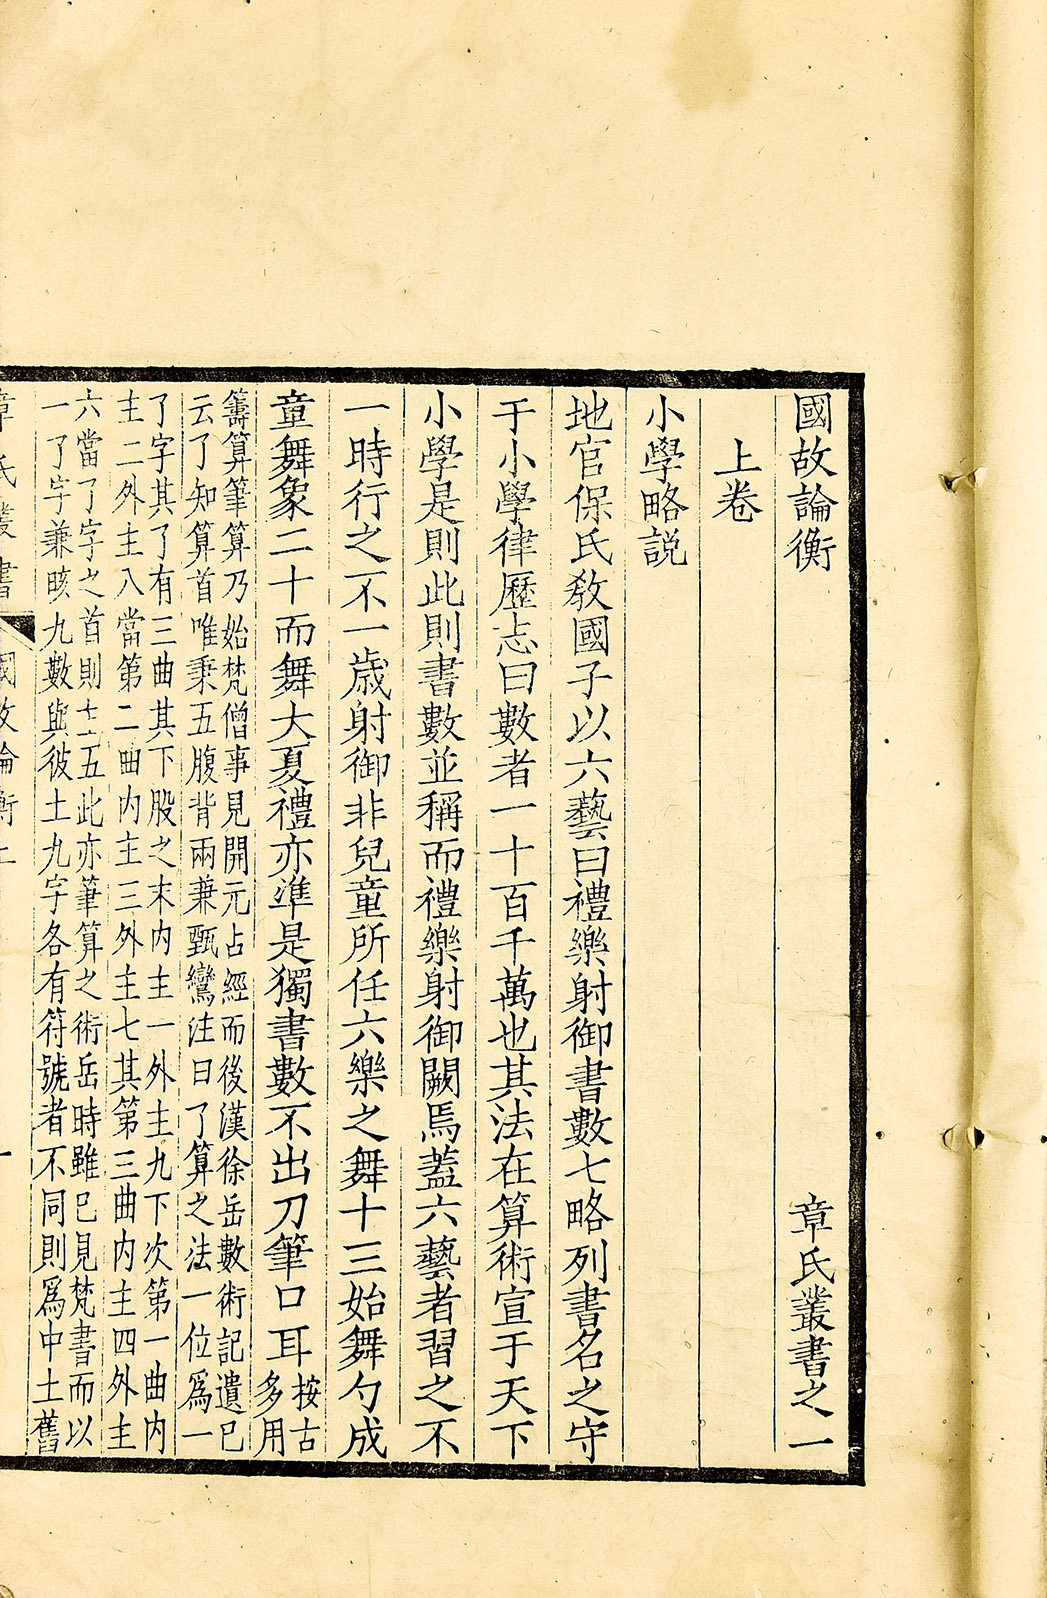 國故論衡　章氏叢書之一
上卷
小學略説
地官保氏敎國子以六藝曰禮樂射御書數七略列書名之守
于小學律歷志曰數者一十百千萬也其法在算術宣于天下
小學是則此則書數並稱而禮樂射御闕焉蓋六藝者習之不
一時行之不一歲射御非兒童所任六樂之舞十三始舞勺成
童舞象二十而舞大夏禮亦準是獨書數不出刀筆口耳
按古
多用
籌算筆算乃始梵僧事見開元占經而後漢徐岳數術記遺已
云了知算首唯秉五腹背兩兼甄鸞注曰了算之法一位爲一
了字其了有三曲其下股之末内主一外主九下次第一曲内
主二外主八當第二曲内主三外主七其第三曲内主四外主
六當了字之首則主五此亦筆算之術岳時雖已見梵書而以
一了字兼晐九數與彼土九字各有符號者不同則爲中土舊
章氏叢書
國故論衡上
一